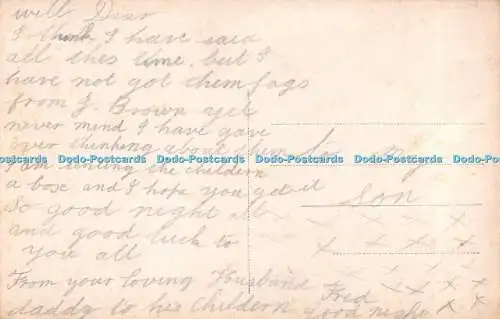 well Dear
I think I have said
all this time, but I
have not got them fags
from J. Brown yet
never mind I have gave
over thinking about them
Dodo-Postcards Dodo-Postcards Dodo-Postcards Dodo-Postcards Dodo-Postcards Dodo-Postcards Dodo-Postcards
I am sending the childern
a box and I hope you get it
So good night all
and good luck to
you all
From your loving Husband Fred
daddy to his childern good night x x
to my
Son
x x x x x
x x x x x
x x x x x
x x x